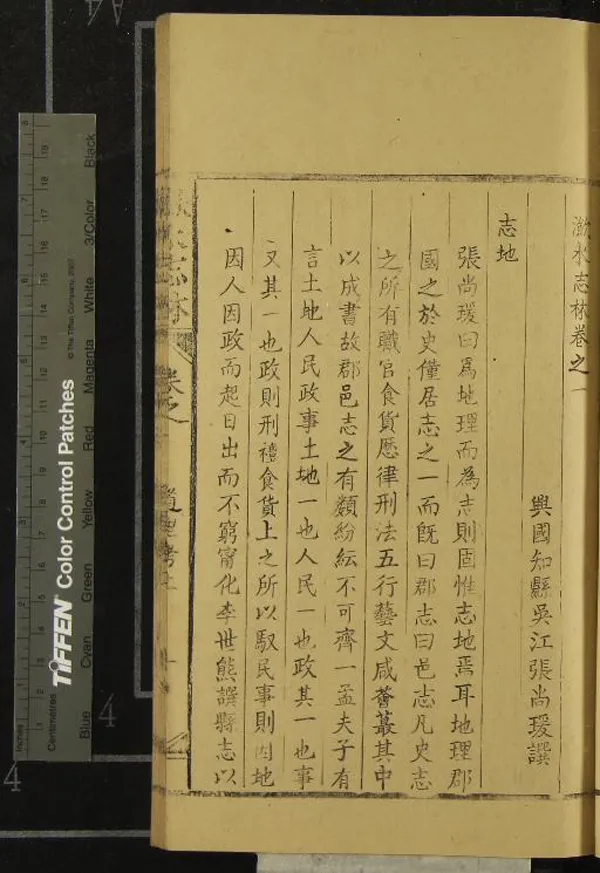 瀲水志林卷之一
興國知縣吳江張尚瑗譔
志地
張尚瑗曰爲地理而為志則固惟志地焉耳地理郡
國之於史僅居志之一而旣曰郡志曰邑志凡史志
之所有職官食貨歷律刑法五行藝文咸薈蕞其中
以成書故郡邑志之有類紛紜不可齊一孟夫子有
言土地人民政事土地一也人民一也政其一也事
又其一也政則刑禮食貨上之所以馭民事則因地
因人因政而起日出而不窮甯化李世熊譔縣志以
志林
卷之
TIFFEN Color Control Patches
© The Tiffen Company, 2007
Inches
Centimetres
Blue
Cyan
Green
Yellow
Red
Magenta
White
3/Color
Black
4
4